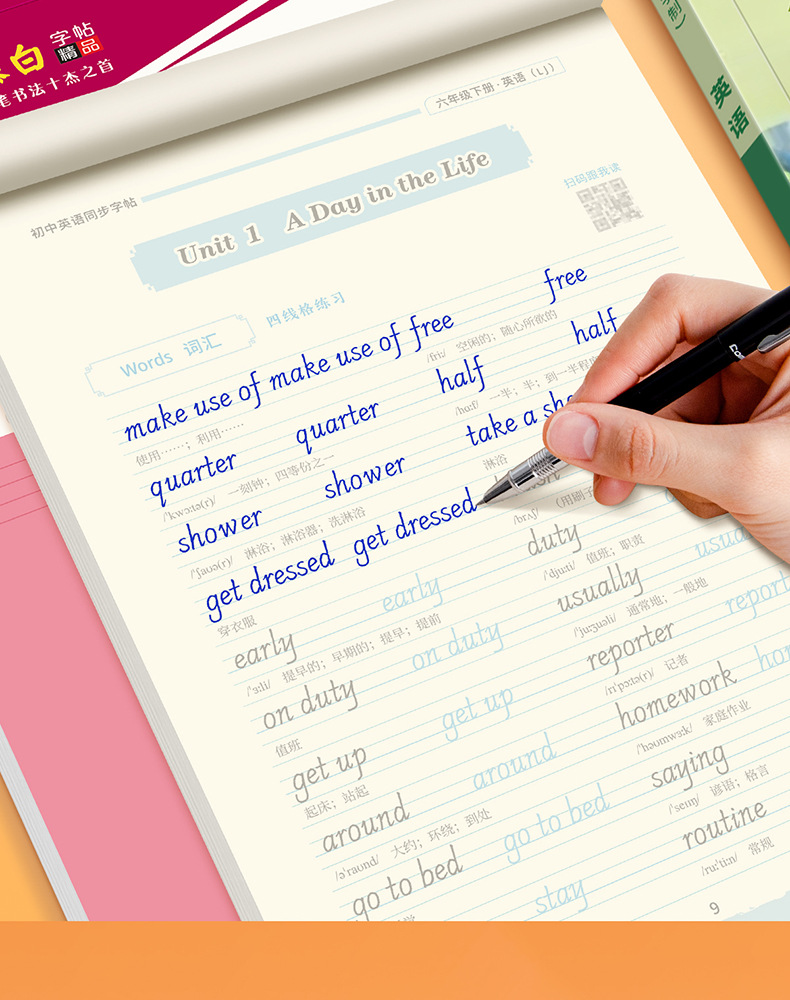 字帖
白
精品
笔书法十杰之首
英语
六年级下册·英语（LJ）
初中英语同步字帖
Unit 1 A Day in the Life
扫码跟我读
Words 词汇
四线格练习
make use of make use of free free
使用……；利用…… /friː/ 空闲的；随心所欲的
quarter quarter half half
/ˈkwɔːtə(r)/ 一刻钟；四等份之一 /hɑːf/ 一半；半；到一半程
shower shower take a sho
/ˈʃaʊə(r)/ 淋浴；淋浴器；洗淋浴 淋浴
get dressed get dressed
穿衣服 /brʌʃ/ （用刷子
early early duty
/ˈɜːli/ 提早的；早期的；提早；提前 /ˈdjuːti/ 值班；职责
on duty on duty usually usua
值班 /ˈjuːʒuəli/ 通常地；一般地
get up get up reporter report
起床；站起 /rɪˈpɔːtə(r)/ 记者
around around homework hom
/əˈraʊnd/ 大约；环绕；到处 /ˈhəʊmwɜːk/ 家庭作业
go to bed go to bed saying
/ˈseɪɪŋ/ 谚语；格言
stay routine
/ruːˈtiːn/ 常规
9